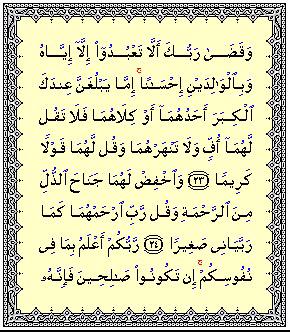 وَقَضَىٰ رَبُّكَ أَلَّا تَعْبُدُوٓا۟ إِلَّآ إِيَّاهُ
وَبِٱلْوَٰلِدَيْنِ إِحْسَٰنًا ۚ إِمَّا يَبْلُغَنَّ عِندَكَ
ٱلْكِبَرَ أَحَدُهُمَآ أَوْ كِلَاهُمَا فَلَا تَقُل
لَّهُمَآ أُفٍّ وَلَا تَنْهَرْهُمَا وَقُل لَّهُمَا قَوْلًا
كَرِيمًا ﴿٢٣﴾ وَٱخْفِضْ لَهُمَا جَنَاحَ ٱلذُّلِّ
مِنَ ٱلرَّحْمَةِ وَقُل رَّبِّ ٱرْحَمْهُمَا كَمَا
رَبَّيَانِى صَغِيرًا ﴿٢٤﴾ رَّبُّكُمْ أَعْلَمُ بِمَا فِى
نُفُوسِكُمْ ۚ إِن تَكُونُوا۟ صَٰلِحِينَ فَإِنَّهُۥ